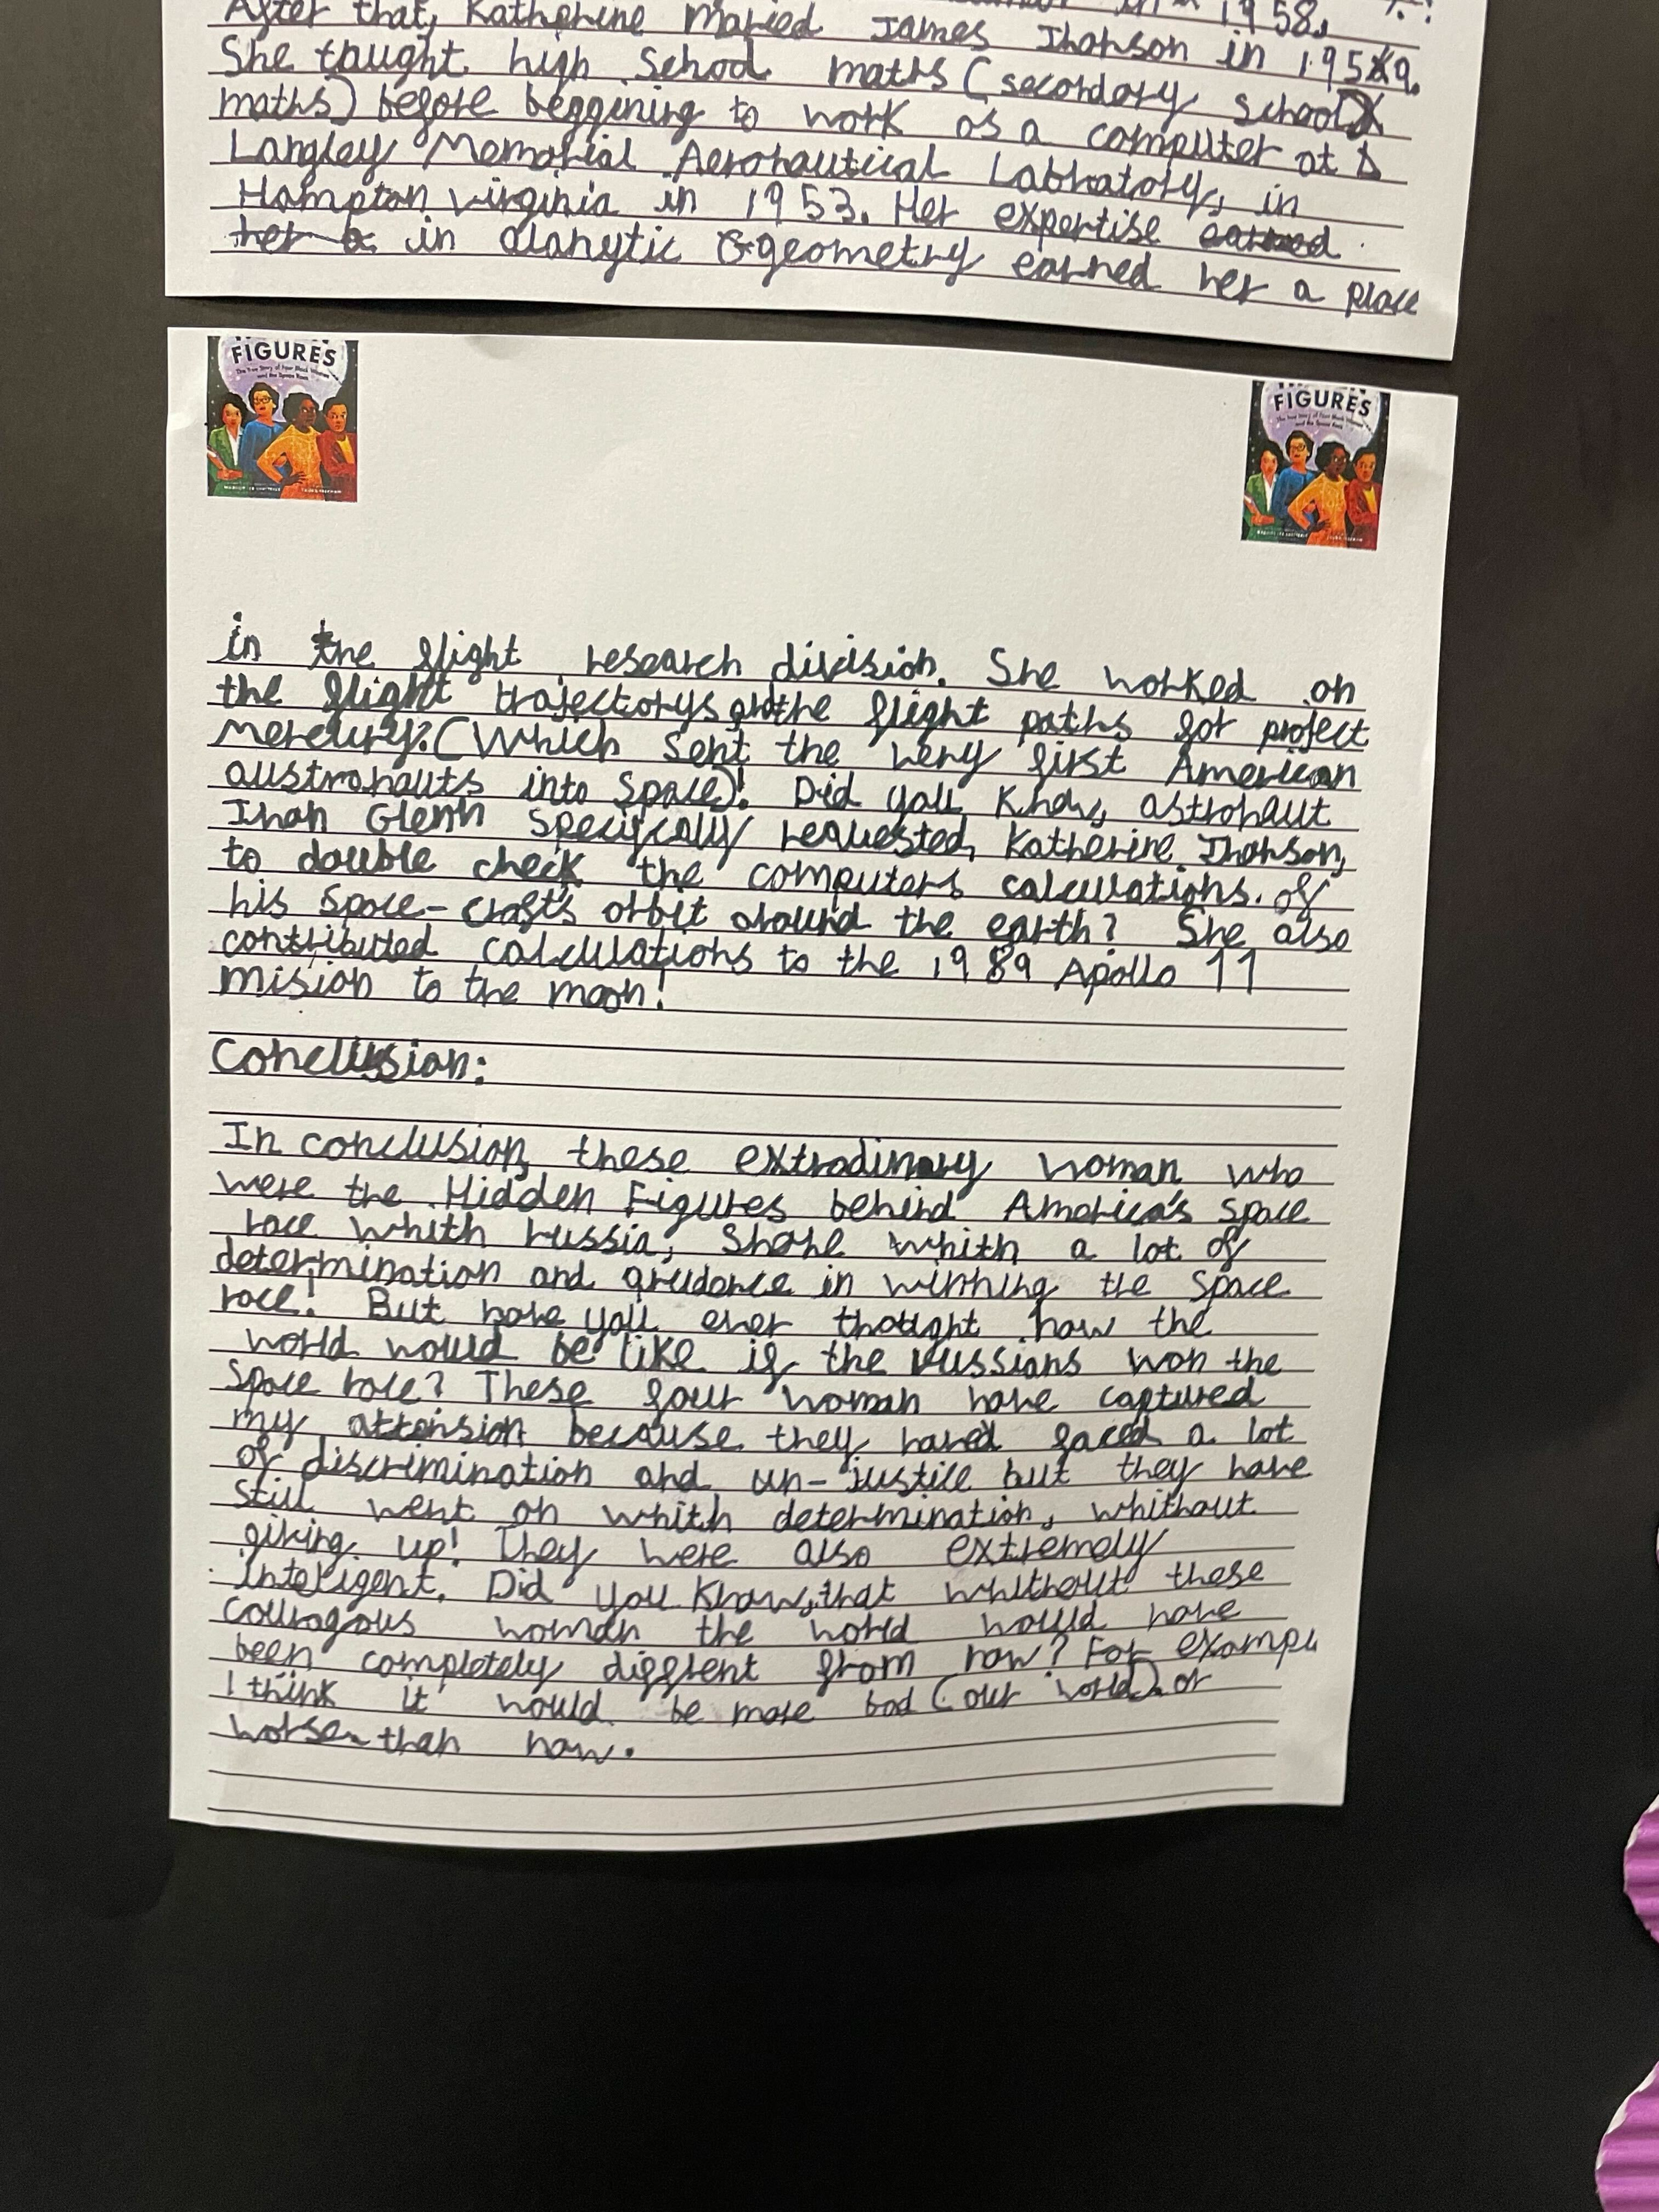 in 1958.
After that, Kathphrine Maried James Jhonson in 1959.
She taught high School maths (secordory school
maths) before beggining to work as a computer at
Langley Memorial Aeronautical Labratory, in
Hampton virginia in 1953. Her expertise earned
her a in alanytic Ggeometry earned her a place
FIGURES
The True Story of Four Black Women
and the Space Race
FIGURES
The True Story of Four Black Women
and the Space Race
in the flight research division. She worked on
the flight trajectorys the flight paths for project
Mercury?(Which sent the very first American
austronauts into space)! Did you know, astronaut
Jhon Glenn specificaly requested, Katherine Jhonson,
to double check the computers calculations. of
his space-crafts orbit around the earth? She also
contributed calculations to the 1989 Apollo 11
mision to the moon!
Conclussion:
In conclusion, these extrodinary woman who
were the Hidden Figures behind America's space
race whith russia, Shone whith a lot of
determination and in winning the space
race! But have you ever thought how the
world would be like if the russians won the
space race? These four woman have captured
my attension because they haved faced a lot
of discrimination and un-justice but they have
still went on whith determination, whithout
giving up! They were also extremely
inteligent. Did you know,that whithout these
couragous woman the world would have
been completely diffrent from now? For exampl
I think it would be more bad (our world) or
worse than now.